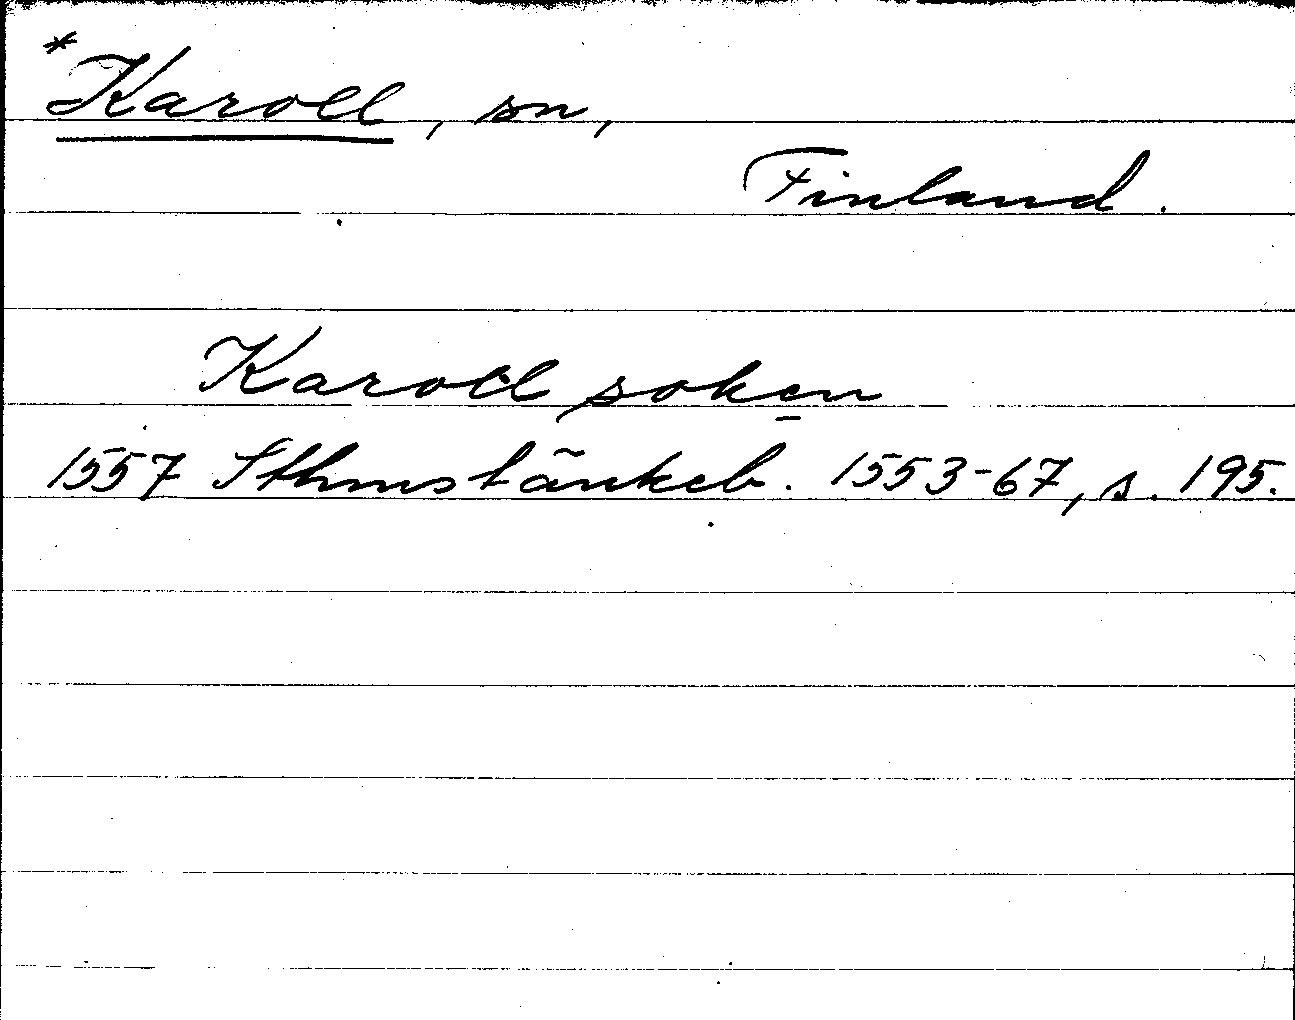 *Karoll, sn,
Finland.
Karoll soken
1557 Sthmstänkeb. 1553-67, s. 195.